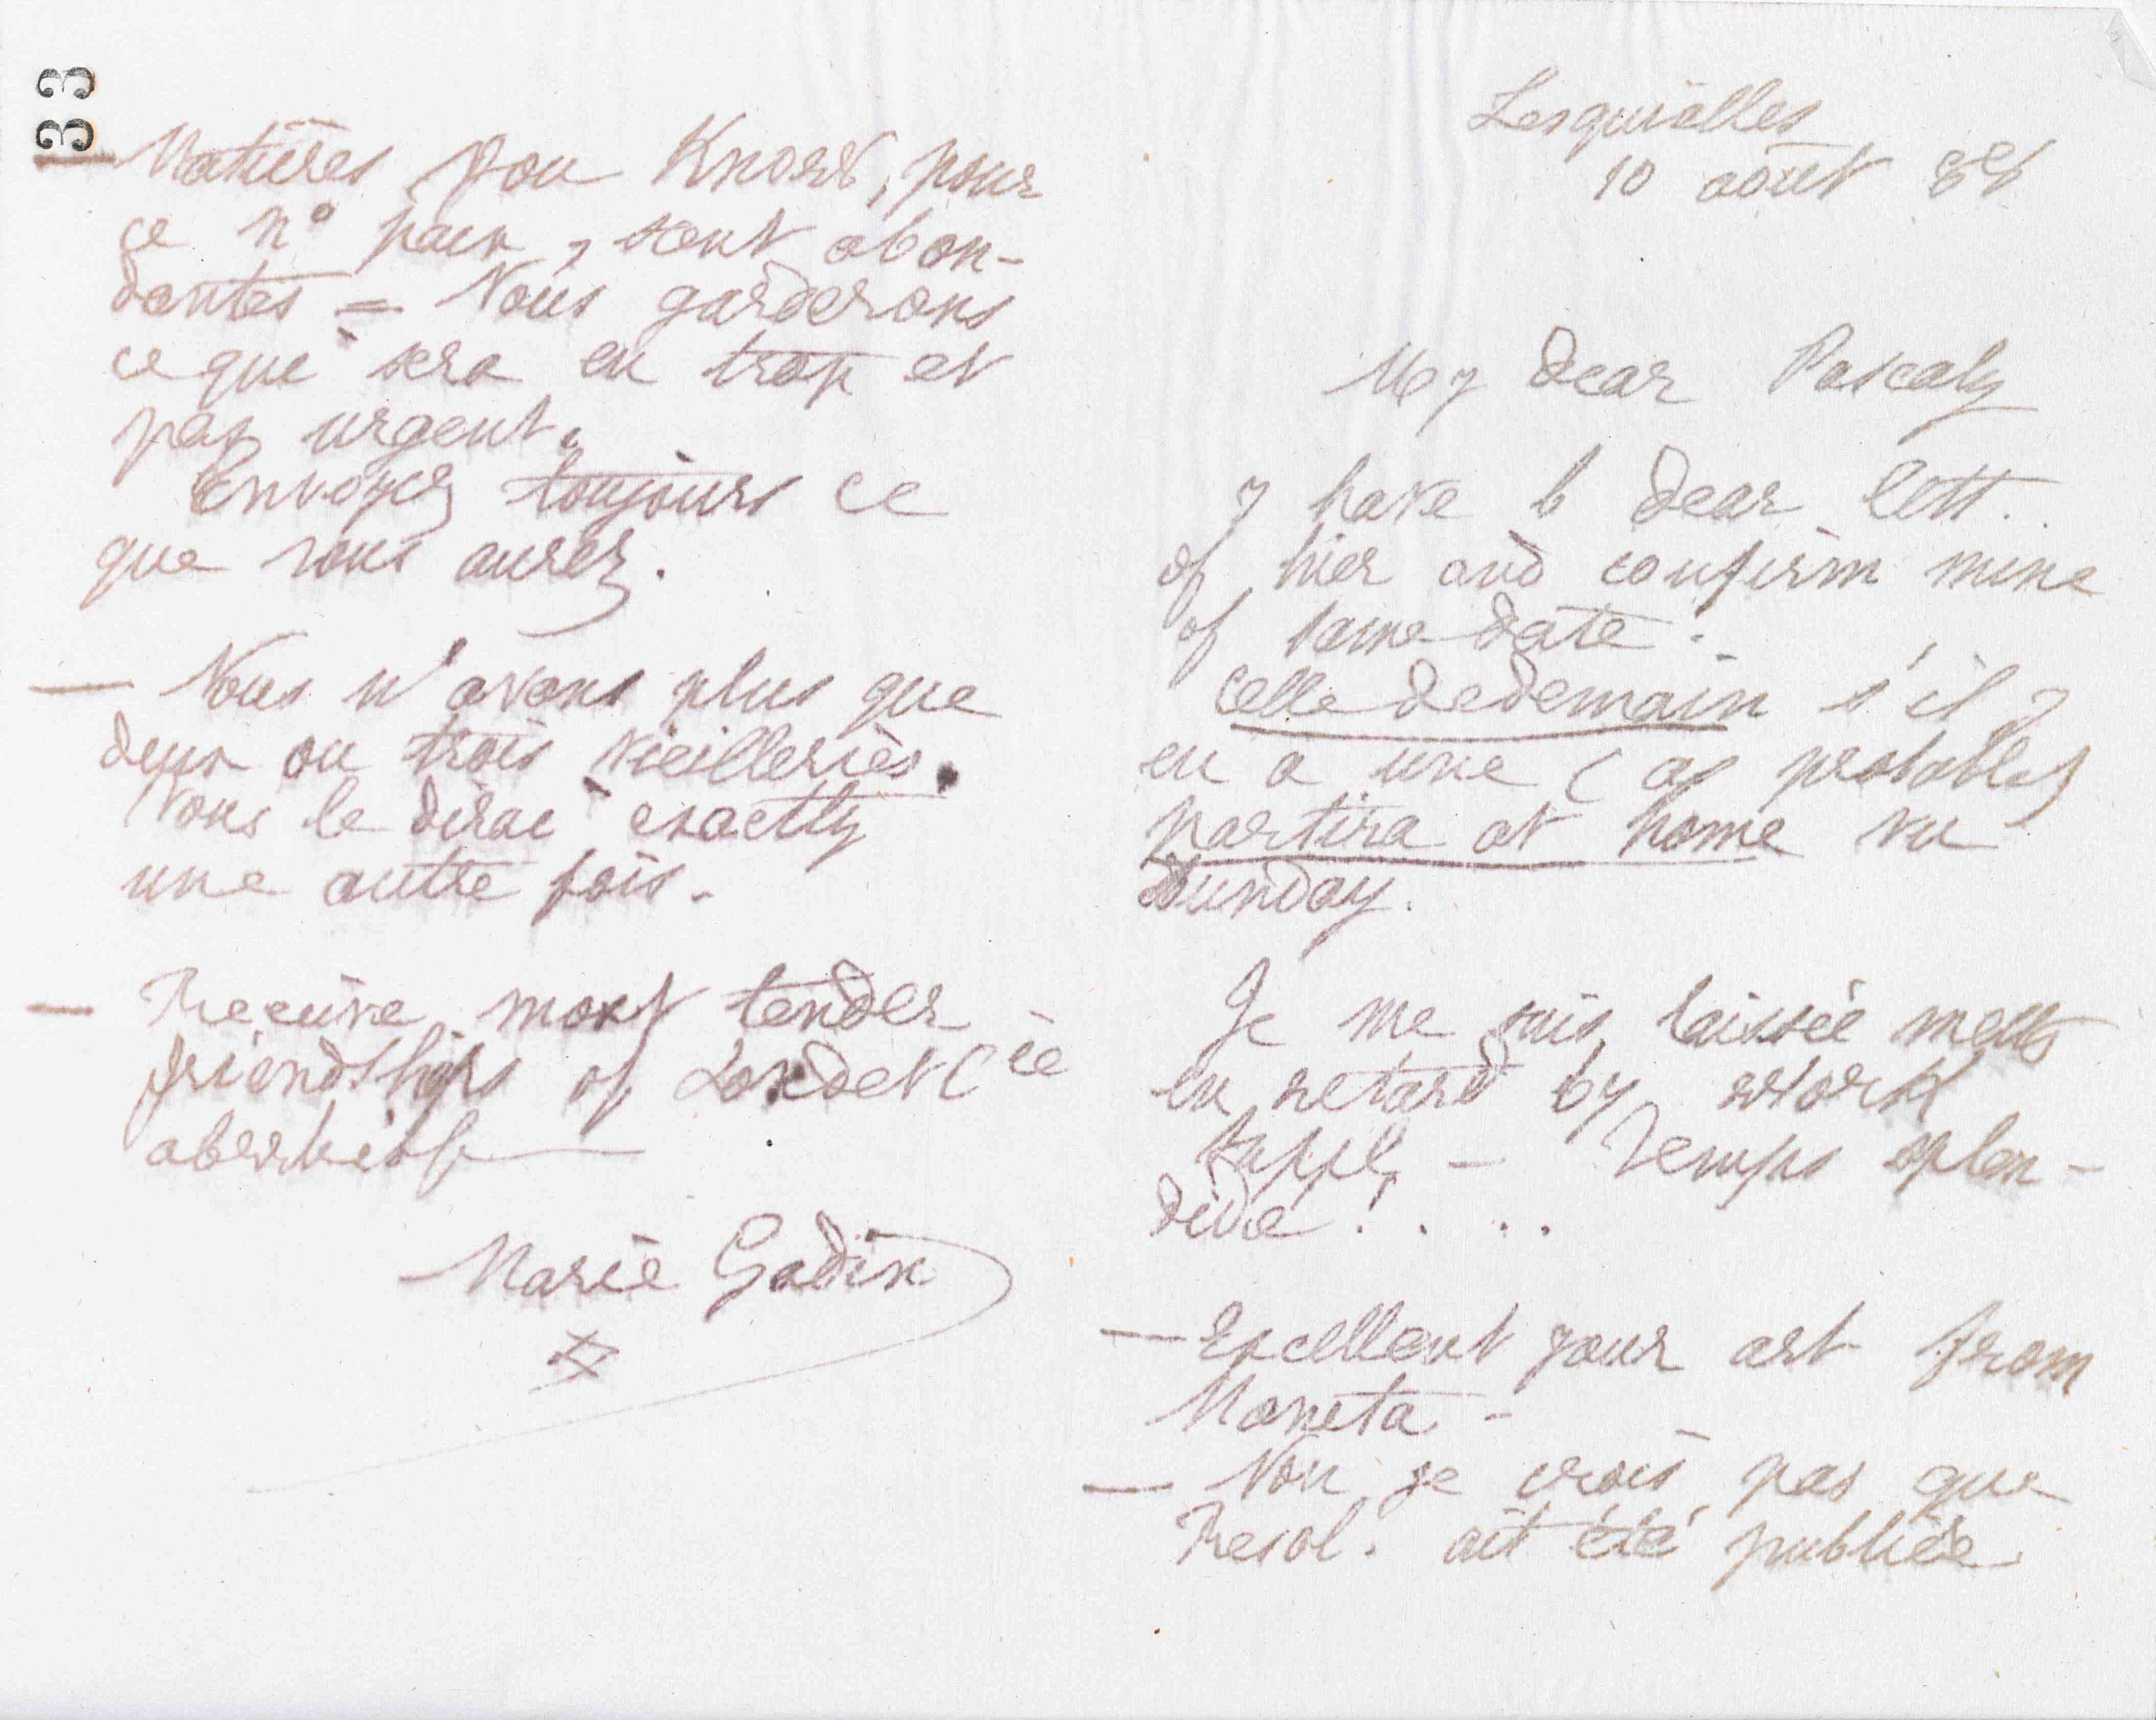 Lesquielles
10 août 88
My dear Pascaly
I have b dear lett.
of hier and confirm mine
of same date.
Celle de demain s'il y
en a une (as probable)
partira at home vu
Sunday.
Je me suis laissée mettre
en retard by work
suppl. — Temps splen-
dide! . . .
— Excellent your art from
Moneta -
— Non je crois pas que
Resol. ait été publiée
33
— Matières you know, pour
ce n° paer, sont abon-
dantes = Nous garderons
ce qui sera en trop et
pas urgent.
Envoyez toujours ce
que vous aurez.
— Nous n'avons plus que
deux ou trois vieilleries.
Vous le dirai exactly
une autre fois.
— Receive most tender
friendships of
Marie Godin